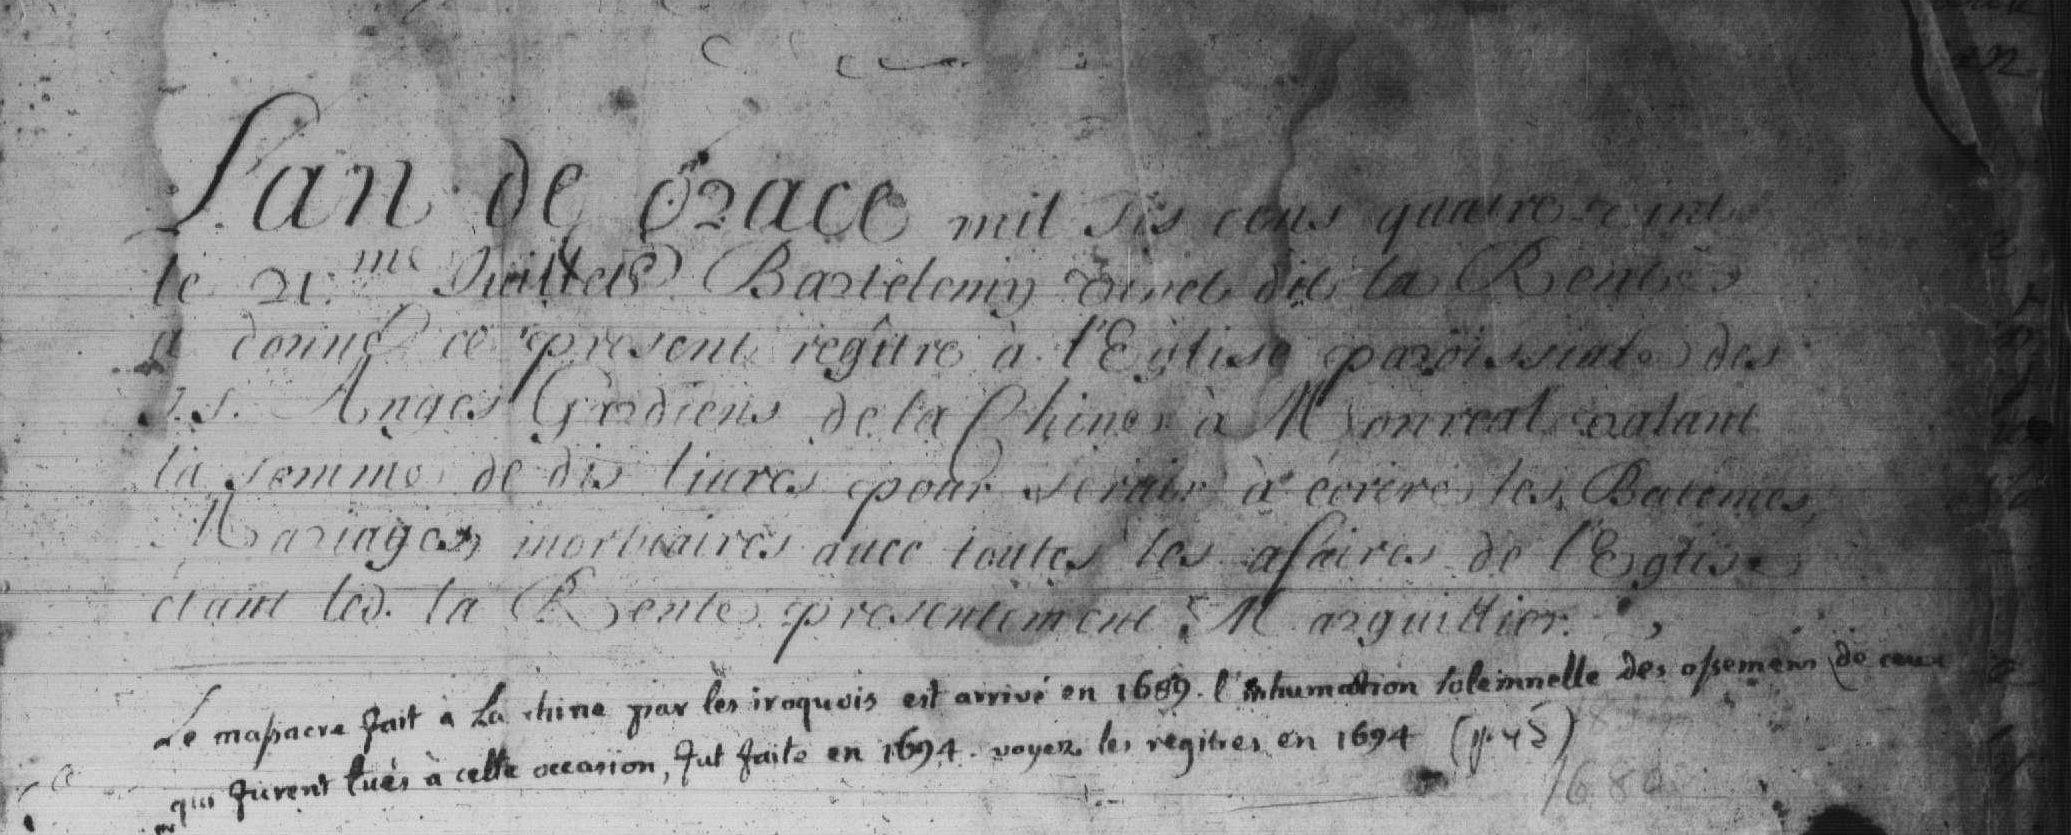 L'an de Grace mil sis cens quatre vint
le 21.me Juillet Bartelemy Vinet dit la Rente
a donné ce present regître à l'Eglise paroissiale des
S.S. Anges Gardiens de la Chine à Monreal valant
la somme de dis livres pour servir à ecrire les Batemes,
Mariages, mortuaires avec toutes les afaires de l'Eglise
etant led. la Rente presentement Marguillier.
Le massacre fait à La chine par les iroquois est arrivé en 1689. l'inhumation solemnelle des ossemens de ceux
qui furent tués à cette occasion, fut faite en 1694. voyez les régitres en 1694
1680